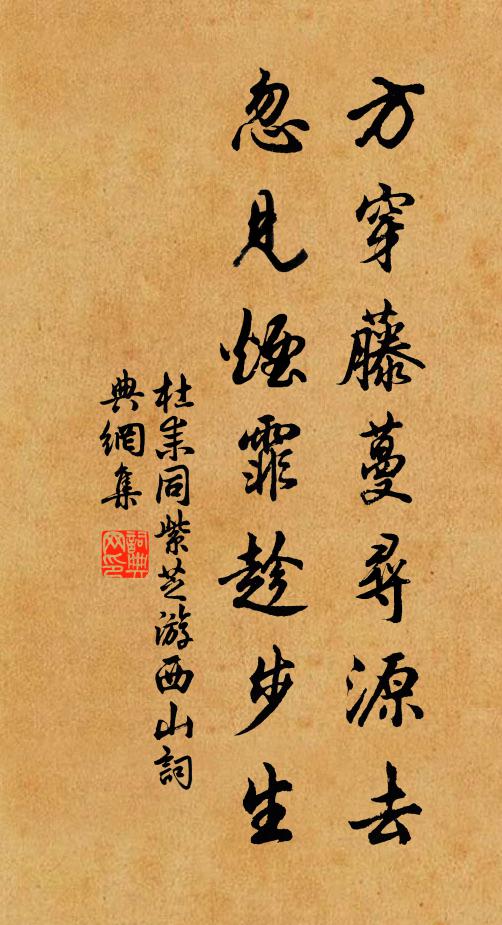 方穿藤蔓尋源去
忽見煙霏趁步生
杜耒同紫芝游西山詞
典網集
詞典網印